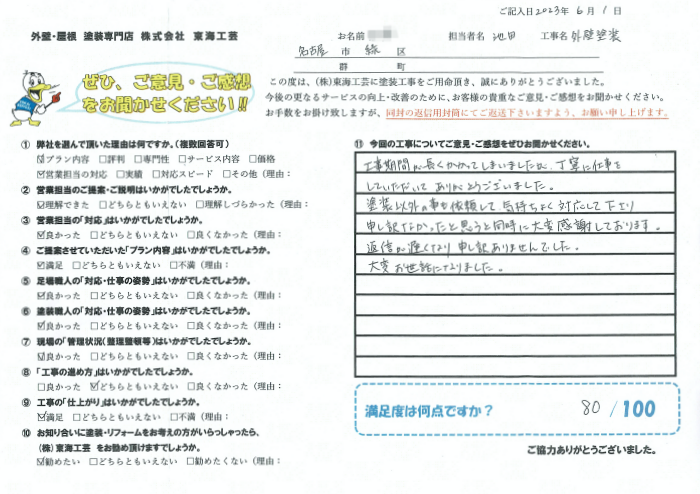 ご記入日2023年 6月 1日
外壁・屋根 塗装専門店 株式会社 東海工芸
お名前 担当者名 池田 工事名 外壁塗装
名古屋 市 緑 区
群 町
ぜひ、ご意見・ご感想
をお聞かせください!!
この度は、(株)東海工芸に塗装工事をご用命頂き、誠にありがとうございました。
今後の更なるサービスの向上・改善のために、お客様の貴重なご意見・ご感想をお聞かせください。
お手数をお掛け致しますが、同封の返信用封筒にてご返送下さいますよう、お願い申し上げます。
① 弊社を選んで頂いた理由は何ですか。(複数回答可)
☑プラン内容 □評判 □専門性 □サービス内容 □価格
☑営業担当の対応 □実績 □対応スピード □その他(理由:
② 営業担当のご提案・ご説明はいかがでしたでしょうか。
☑理解できた □どちらともいえない □理解しづらかった(理由:
③ 営業担当の「対応」はいかがでしたでしょうか。
☑良かった □どちらともいえない □良くなかった(理由:
④ ご提案させていただいた「プラン内容」はいかがでしたでしょうか。
☑満足 □どちらともいえない □不満(理由:
⑤ 足場職人の「対応・仕事の姿勢」はいかがでしたでしょうか。
☑良かった □どちらともいえない □良くなかった(理由:
⑥ 塗装職人の「対応・仕事の姿勢」はいかがでしたでしょうか。
☑良かった □どちらともいえない □良くなかった(理由:
⑦ 現場の「管理状況(整理整頓等)はいかがでしたでしょうか。
☑良かった □どちらともいえない □良くなかった(理由:
⑧ 「工事の進め方」はいかがでしたでしょうか。
□良かった ☑どちらともいえない □良くなかった(理由:
⑨ 工事の「仕上がり」はいかがでしたでしょうか。
☑満足 □どちらともいえない □不満(理由:
⑩ お知り合いに塗装・リフォームをお考えの方がいらっしゃったら、
(株)東海工芸 をお勧め頂けますでしょうか。
☑勧めたい □どちらともいえない □勧めたくない(理由:
⑪ 今回の工事についてご意見・ご感想をぜひお聞かせください。
工事期間が長くかかってしまいましたが、丁寧に仕事を
していただいて ありがとうございました。
塗装以外の事も依頼して 気持ちよく対応して下さり
申し訳なかったと思うと同時に大変感謝しております。
返信が遅くなり 申し訳ありませんでした。
大変お世話になりました。
満足度は何点ですか? 80 /100
ご協力ありがとうございました。